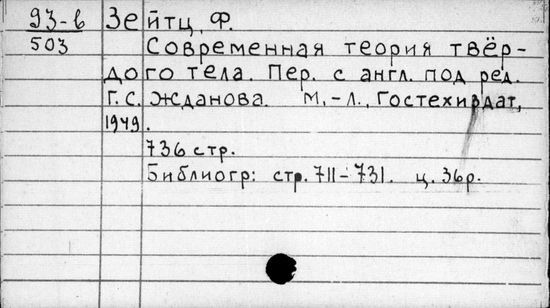 93-в Зейтц, Ф.
503 Современная теория твёр-
дого тела. Пер. с англ. под ред.
Г.С. Жданова. М.-Л., Гостехиздат,
1949.
736 стр.
Библиогр: стр. 711-731. ц. 36р.